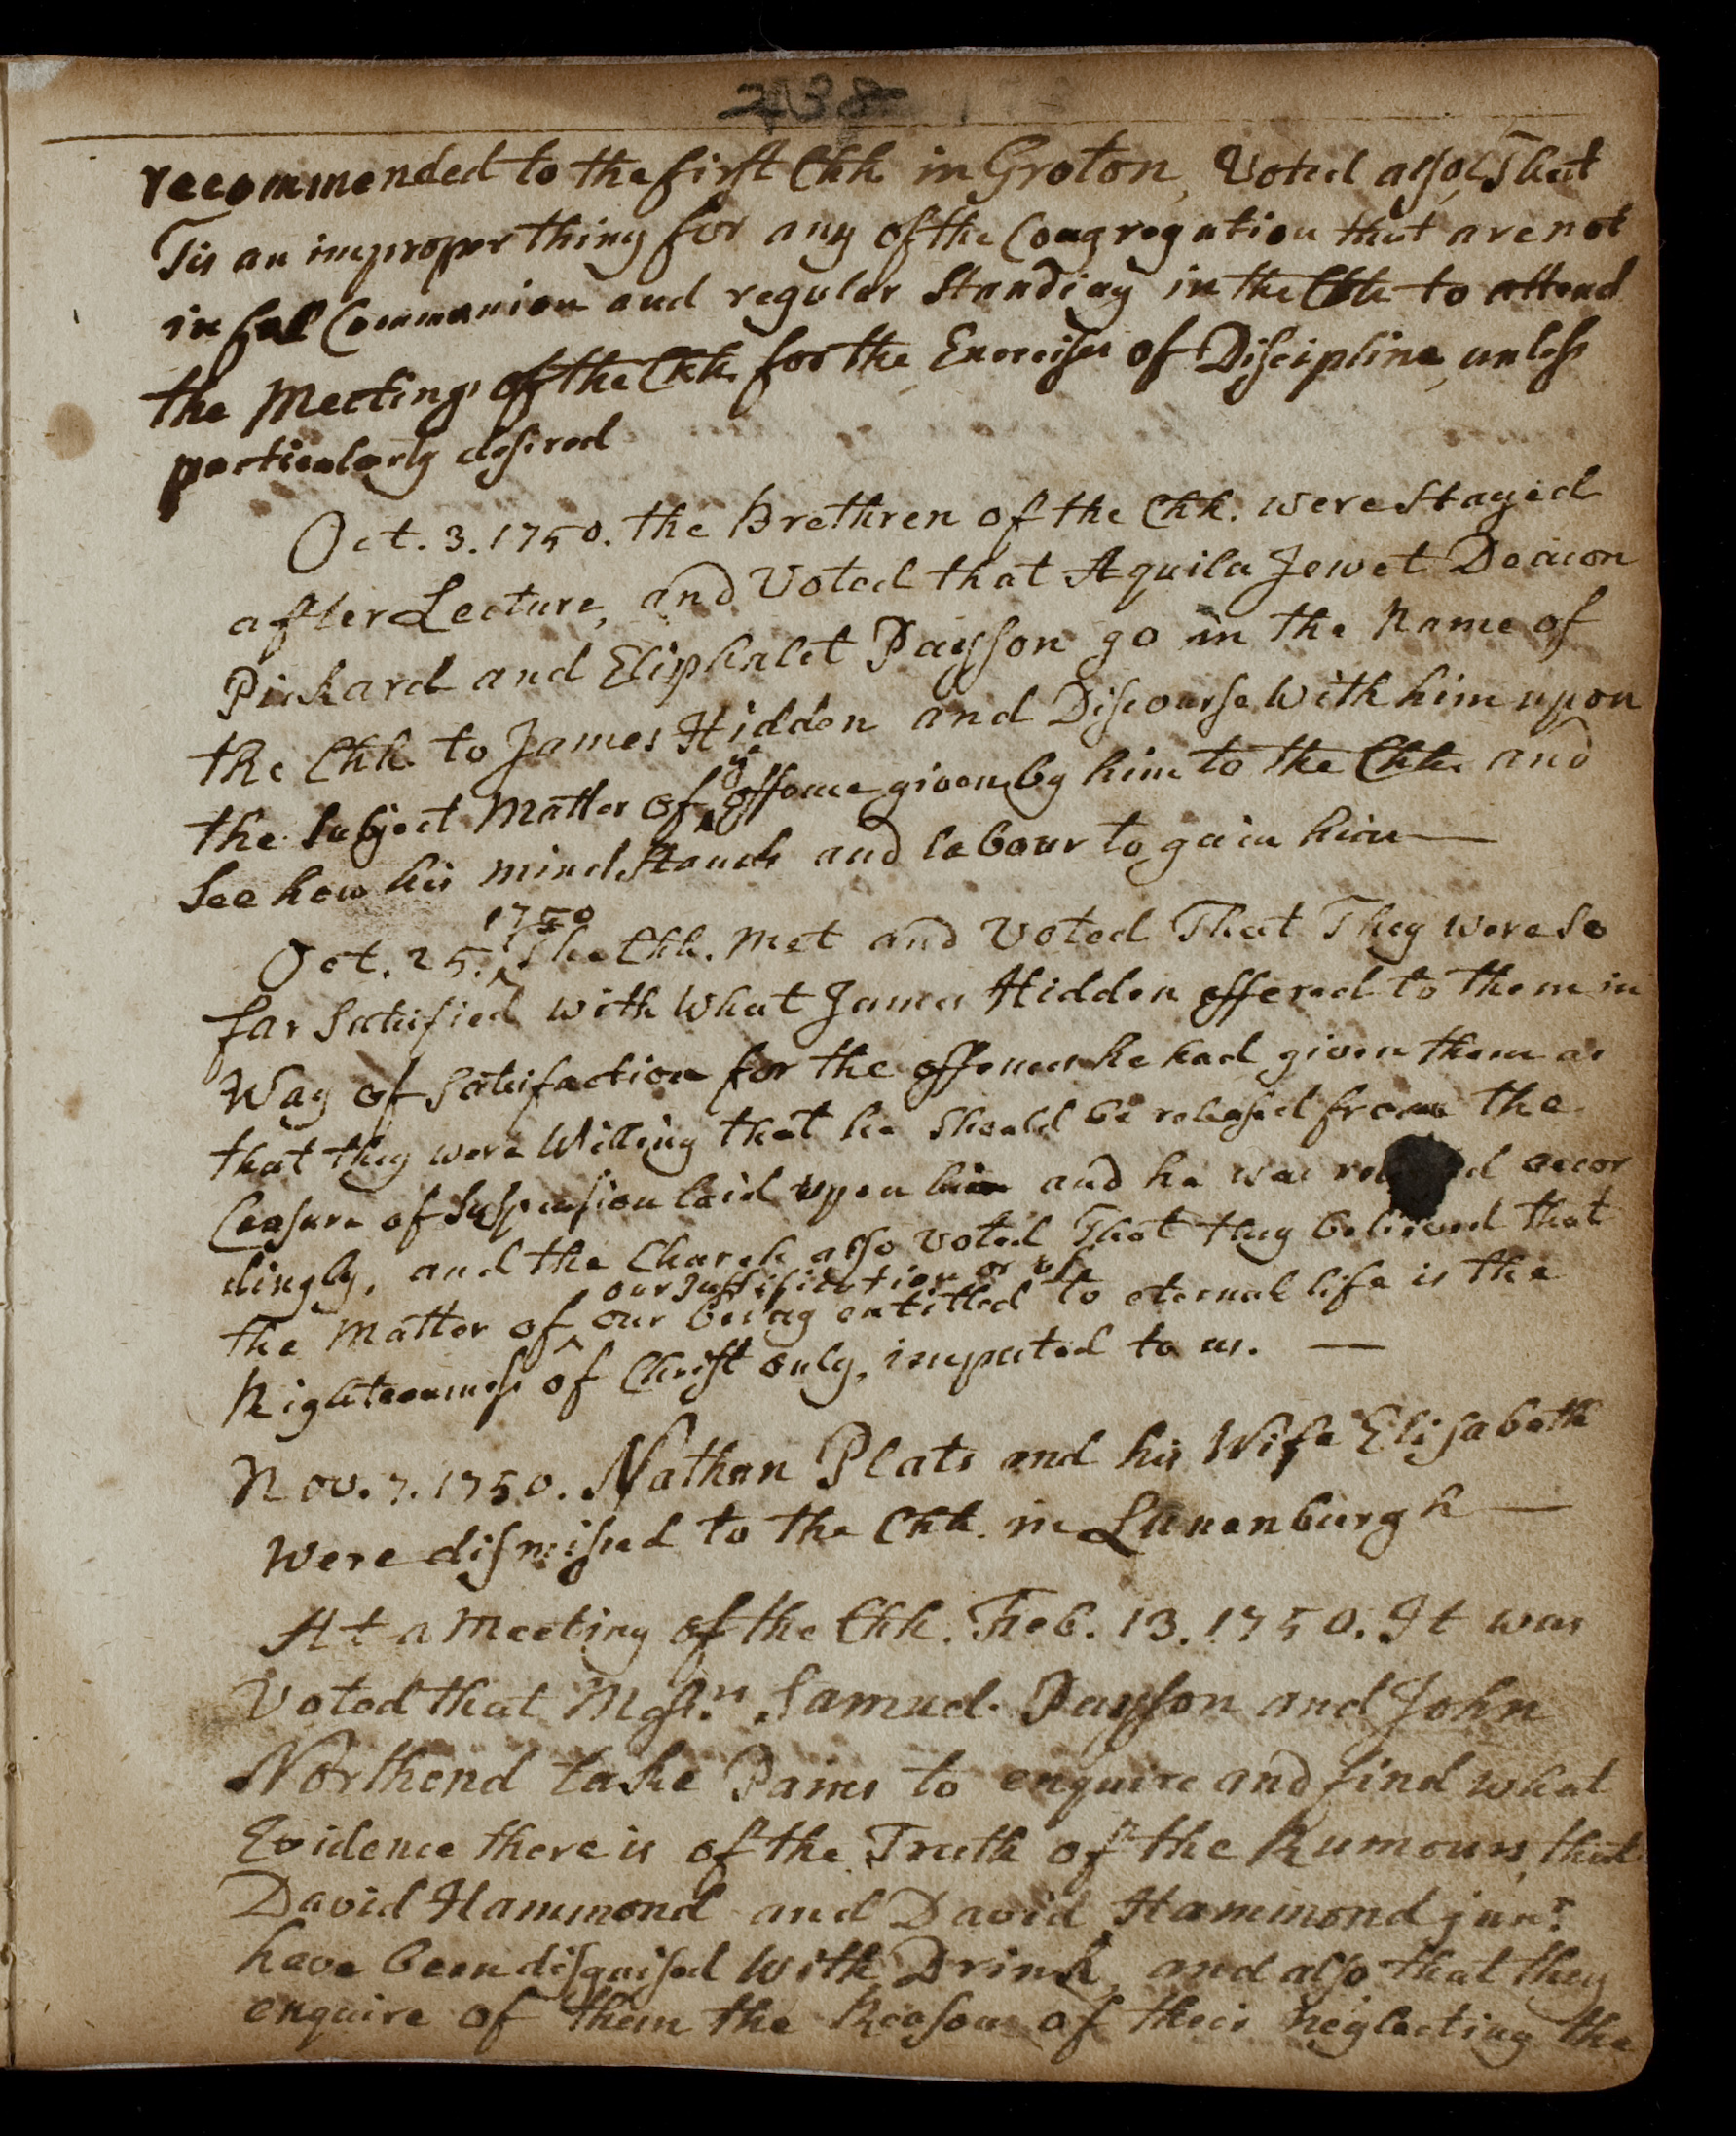 238
recommended to the first Chh in Groton, Voted also, That
Tis an improper thing for any of the Congregation that are not
in full Communion and regular Standing in the Chh to attend
the Meetings of the Chh. for the Exercises of Discipline, unless
particularly desired
Oct. 3. 1750. the Brethren of the Chh. were Stayed
after Lecture, and Voted that Aquila Jewet Deacon
Pickard and Eliphalet Payson go in the Name of
the Chh to James Hidden and Discourse With him upon
the Subject Matter of ^ye offence given by him to the Chh. and
See how his mind Stands and labour to gain him —
Oct. 25. ^1750 The Chh. met and Voted That They were so
far Satisfied with What James Hidden offered to them in
Way of Satisfaction for the offences he had given them as
that they were Willing that he Should be released from the
Censure of Suspension laid upon him and he was rel d accor
dingly, and the Church also Voted That they believed that
our Justification or of
the Matter of ^ our being entitled to eternal life is the
Righteousness of Christ only, imputed to us. —
Nov. 7. 1750. Nathan Plats and his Wife Elisabeth
Were dismissed to the Chh. in Lunenburgh —
At a Meeting of the Chh. Feb. 13. 1750. It was
Voted that Messrs. Samuel Payson and John
Northend take Pains to enquire and find what
Evidence there is of the Truth of the Rumours, that
David Hammond and David Hammond junr
have been disguised With Drink, and also that they
enquire of them the Reason of their neglecting the